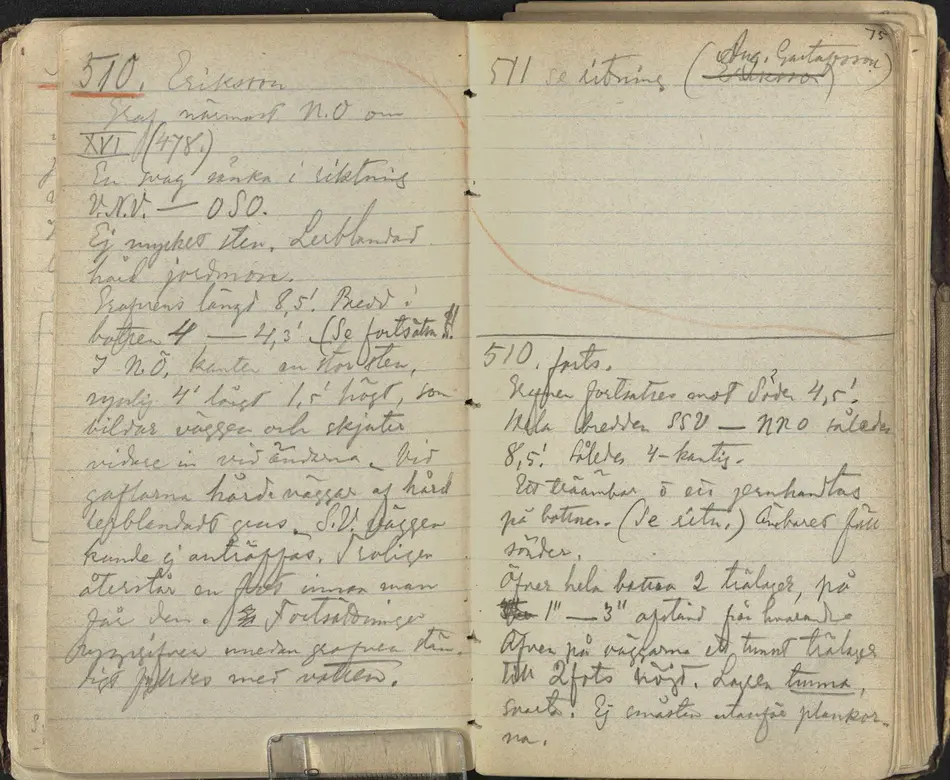 510. Eriksson
Graf närmast N.O om
XVI (478.)
En svag sänka i riktning
V.N.V. — OSO.
Ej mycket sten. Lerblandad
hård jordmon.
Grafvens längd 8,5'. Bredd i
botten 4 — 4,3' (Se fortsättn
I N.Ö. kanten en stor sten,
4' långt 1,5' högt, som
bildar väggen och skjuter
vidare in vid ändarna. Vid
gaflarna hårda väggar af hård
lerblandadt grus. S.V. väggen
kunde ej anträffas. Troligen
återstår en fot innan man
når den. Fortsättningen
uppgifven emedan grafven stän-
digt fylldes med vatten.
75
511 se ritning (Aug. Gustafsson)
Eriksson
510. forts.
Grafven fortsattes mot Söder 4,5'.
Hela bredden SSV — NNO således
8,5'. Således 4-kantig.
Ett träämbar o ett jernhandtag
på bottnen. (Se ritn.) Ämbaret föll
sönder.
Öfver hela botten 2 trälager, på
1" — 3" afstånd från hvarandra
Äfven på väggarna ett tunnt trälager
till 2 fots höjd. Lagren tunna,
svarta. Ej utanför plankor-
na.